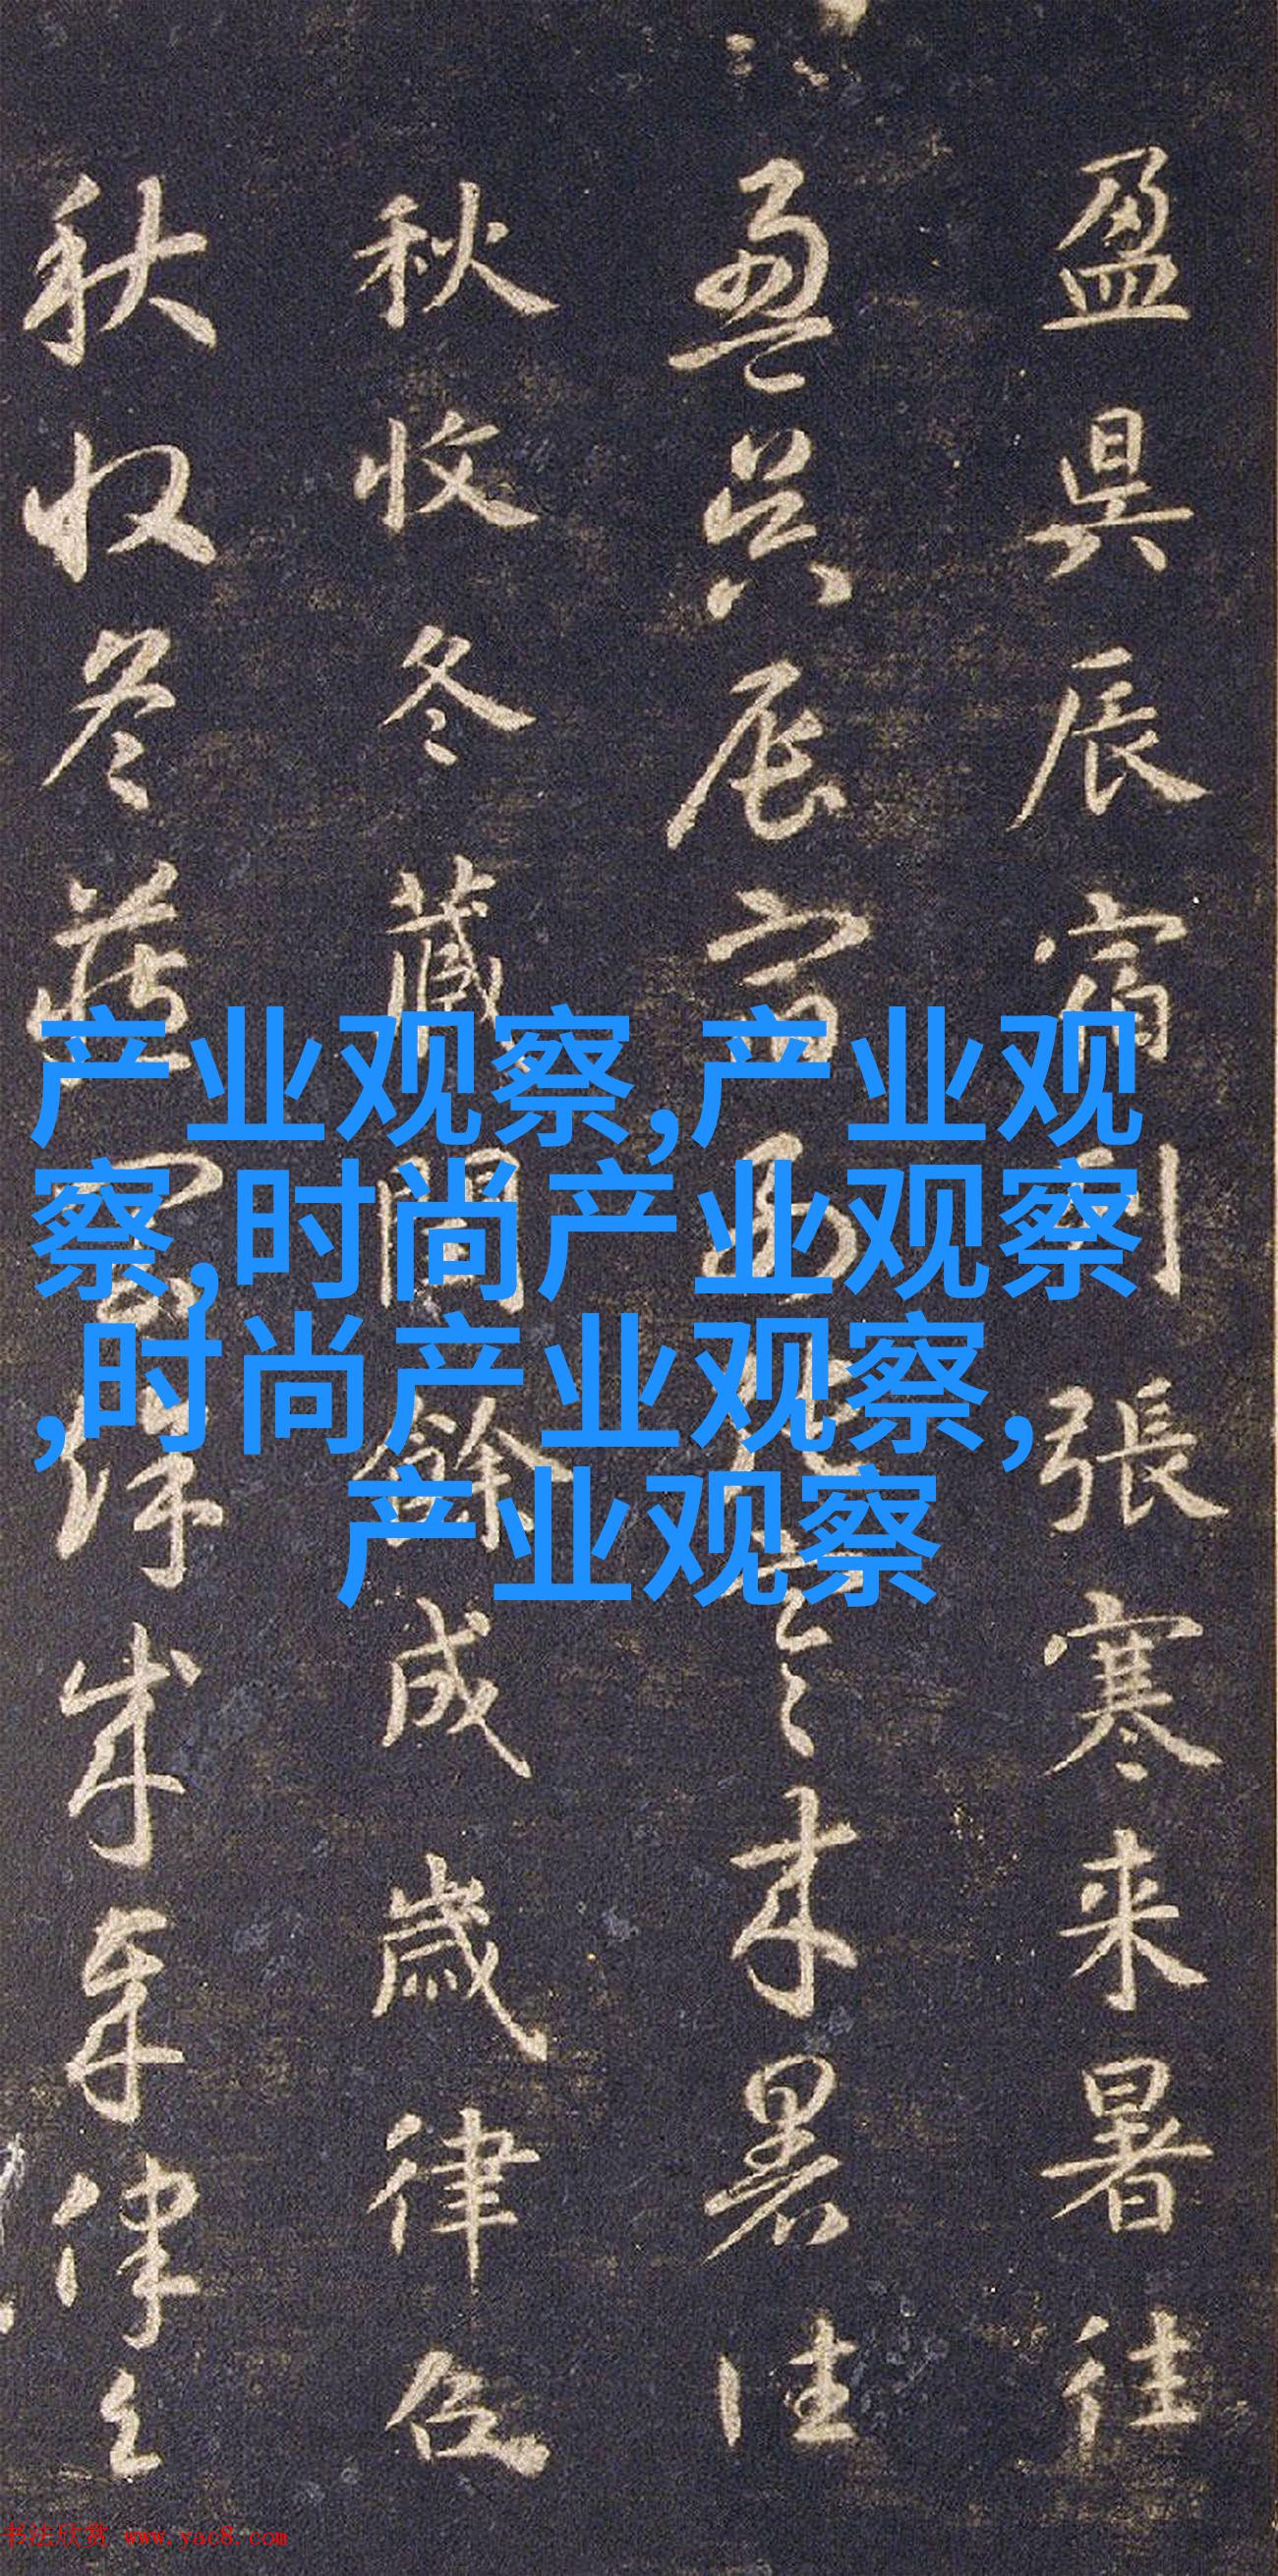 盈昃辰宿列張寒来暑往
盈昃辰宿列張寒来暑往
秋收冬藏閏餘成歲律召
秋收冬藏閏餘成歲律召
产业观察,产业观
察,时尚产业观察
,时尚产业观察,
产业观察
书法欣赏 www.yac8.com